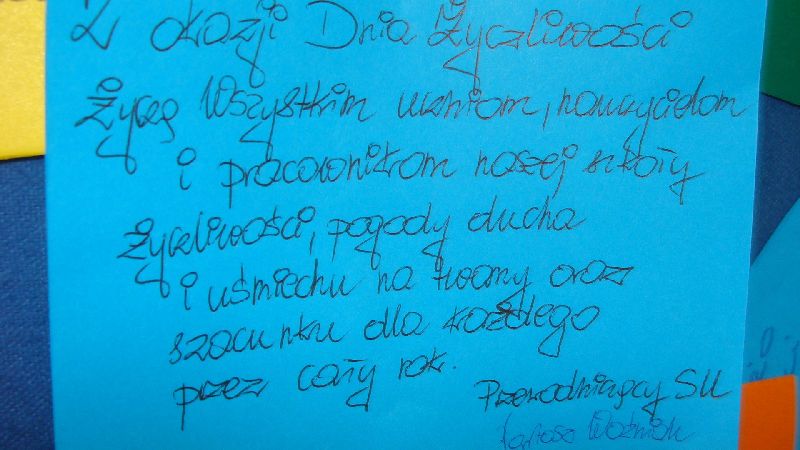 Z okazji Dnia Życzliwości
Życzę Wszystkim uczniom, nauczycielom
i pracownikom naszej szkoły
życzliwości, pogody ducha
i uśmiechu na twarzy oraz
szacunku dla każdego
przez cały rok.
Przewodniczący SU
Woźniak